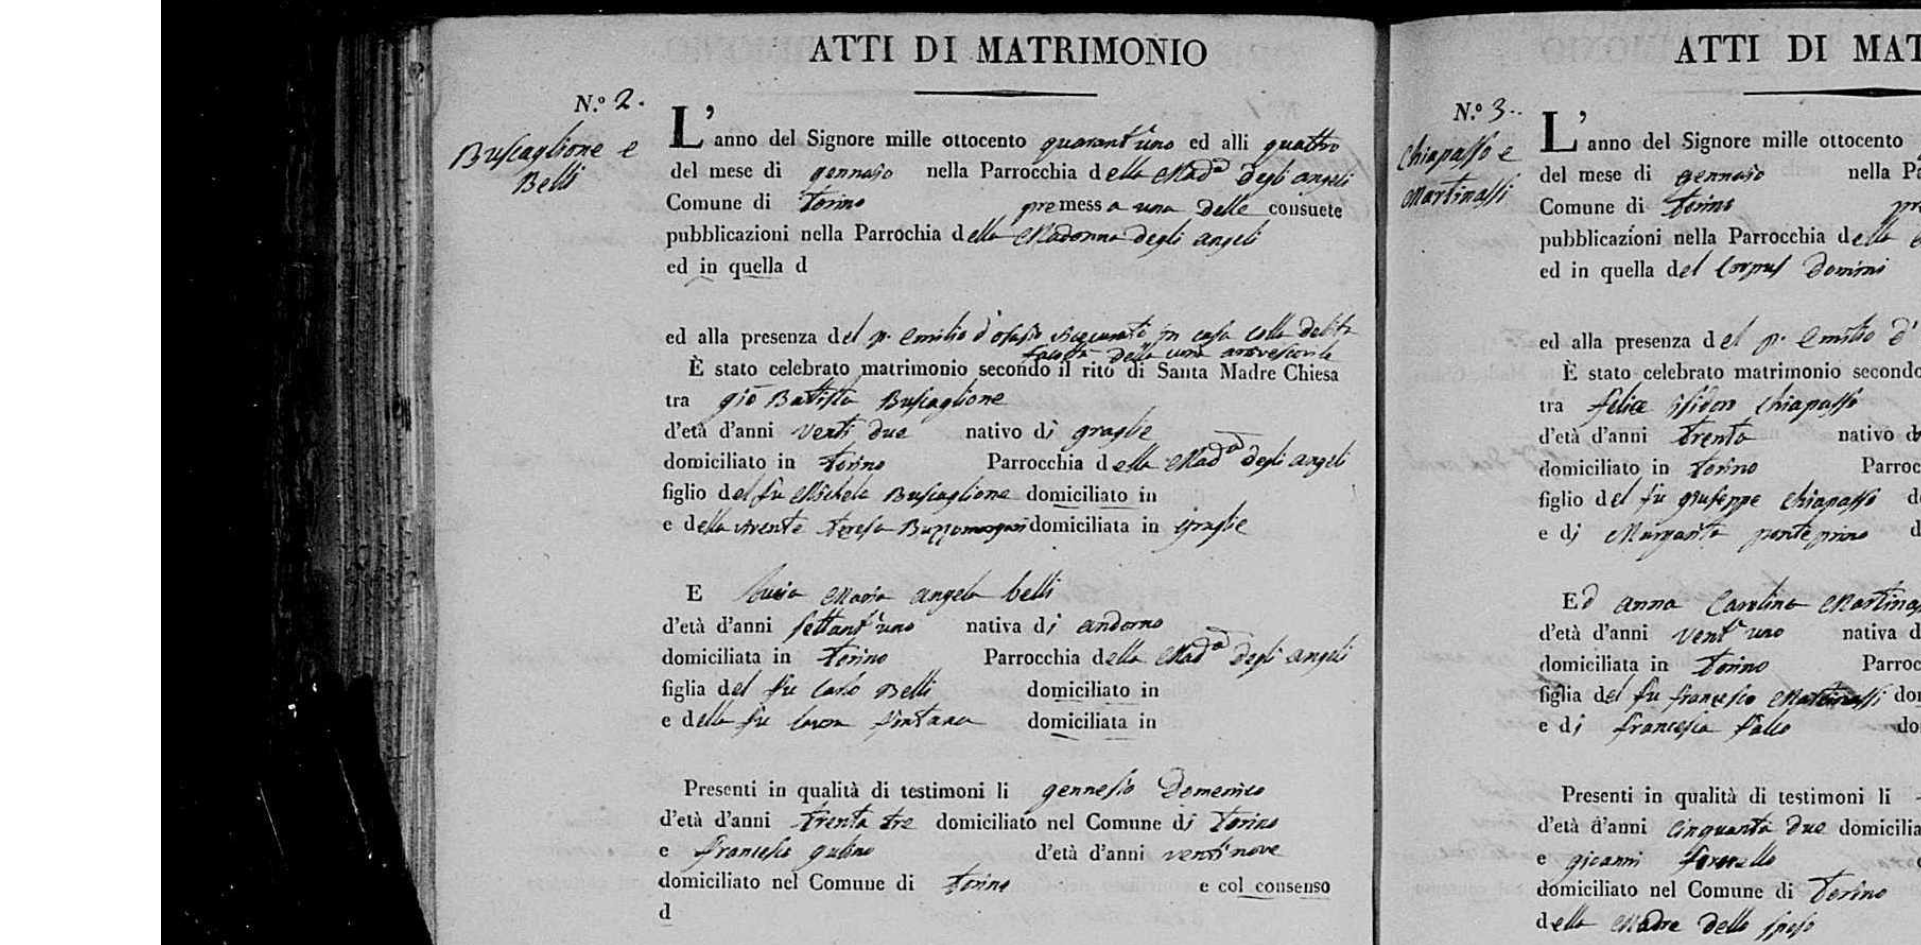 ATTI DI MATRIMONIO
N.º 2.
Buscaglione e
Belli
L'anno del Signore mille ottocento quarant'uno ed alli quattro
del mese di gennajo nella Parrocchia della Madª degli angeli
Comune di Torino premessa una delle consuete
pubblicazioni nella Parrochia della Madonna degli angeli
ed in quella d
ed alla presenza del p. Emilio d'osasio vicecurato in casa colla debita
facoltà della curia
È stato celebrato matrimonio secondo il rito di Santa Madre Chiesa
tra giõ Battista Buscaglione
d'età d'anni venti due nativo di graglie
domiciliato in Torino Parrocchia della Madª degli angeli
figlio del fu Michele Buscaglione domiciliato in
e della vivente Teresa domiciliata in graglie
E Lucia Maria angela belli
d'età d'anni settant'uno nativa di andorno
domiciliata in Torino Parrocchia della Madª degli angeli
figlia del fu Carlo Belli domiciliato in
e della fu fontana domiciliata in
Presenti in qualità di testimoni li gennesio Domenico
d'età d'anni trenta tre domiciliato nel Comune di Torino
e francesco gulino d'età d'anni ventinove
domiciliato nel Comune di Torino e col consenso
d
ATTI DI MAT
N.º 3.
Chiapasso e
Martinassi
L'anno del Signore mille ottocento
del mese di gennajo nella Pa
Comune di Torino pr
pubblicazioni nella Parrocchia della
ed in quella del Corpus Domini
ed alla presenza del p. Emilio d'
È stato celebrato matrimonio secondo
tra felice isidoro Chiapasso
d'età d'anni trenta nativo d
domiciliato in Torino Parroc
figlio del fu giuseppe Chiapasso d
e di Margarita ponteprino d
Ed anna Carolina Martinas
d'età d'anni vent'uno nativa d
domiciliata in Torino Parroc
figlia del fu francesco Martinassi dom
e di francesca falco do
Presenti in qualità di testimoni li
d'età d'anni cinquanta due domicilia
e gioanni
domiciliato nel Comune di Torino
della Madre dello sposo